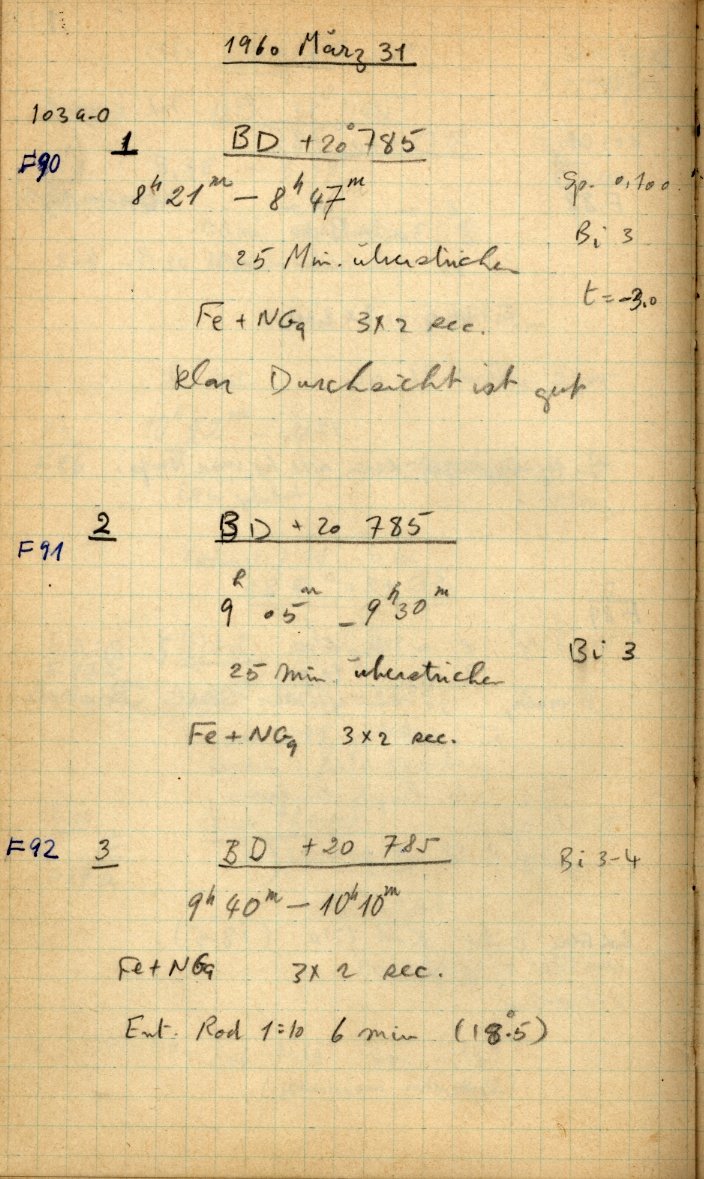 1960 März 31
103a-O
F90 1 BD +20° 785
8h 21m — 8h 47m
Sp. 0,100
Bi 3
25 Min. überstrichen
t = -3.0
Fe + NG9 3x2 sec.
klar Durchsicht ist gut
F91 2 BD + 20 785
9h 05m — 9h 30m
Bi 3
25 min überstrichen
Fe + NG9 3x2 sec.
F92 3 BD +20 785
Bi 3-4
9h 40m — 10h 10m
Fe + NG9 3x2 sec.
Ent. Rod 1:10 6 min (18°.5)